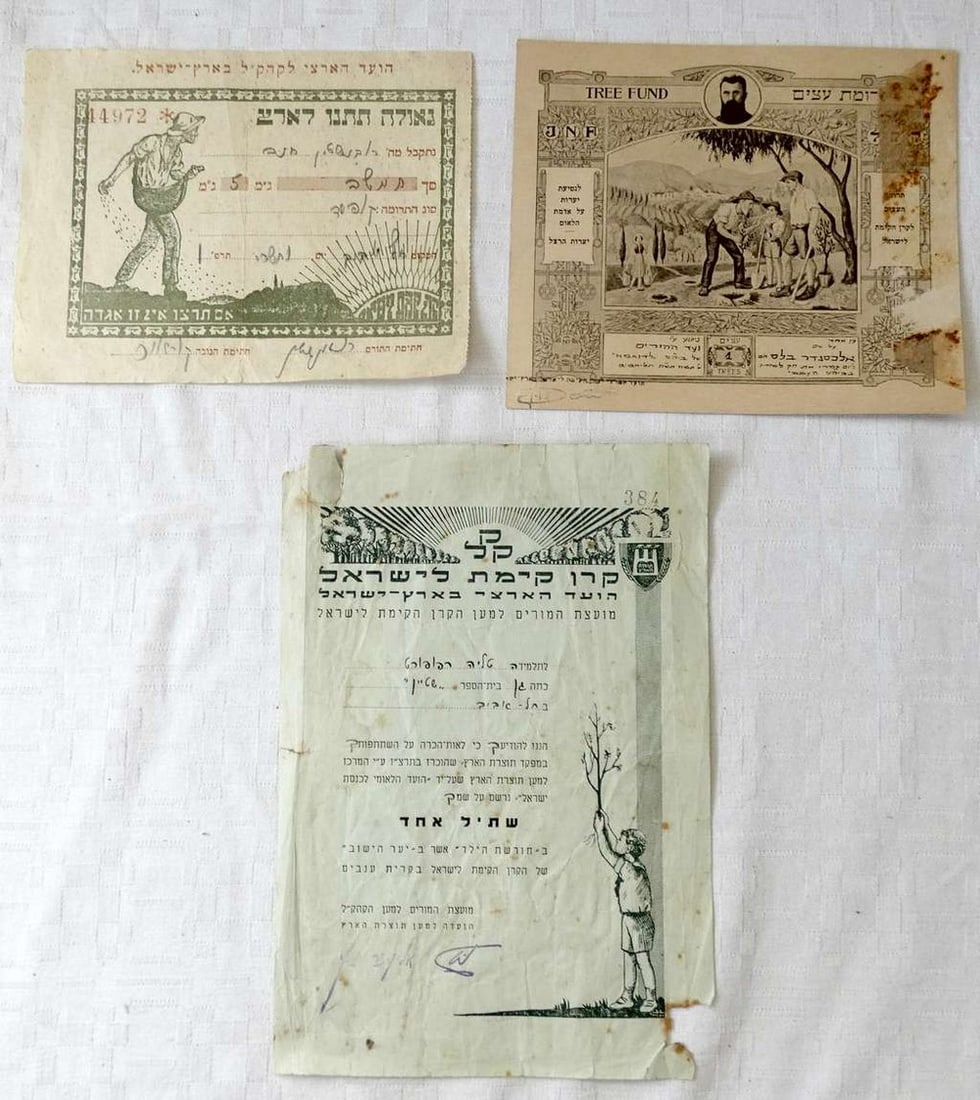 הועד הארצי לקהק״ל בארץ־ישראל.
44972 *
גאולה תתנו לארץ
נתקבל מה׳ רובינשטיין חנה
סך חמשה גימ 5 ג״מ
סוג התרומה:
אם תרצו אין זו אגדה
חתימת התורם
חתימת הגובה
TREE FUND
תרומת עצים
J N F
לנטיעת
יערות
על אדמת
הלאום
יערות הרצל
תרומת
העצים
לקרן הקימת
לישראל
עצים
1
TREES
ועד ההורים
אלכסנדר בלס
384
ק
קל
קרן קימת לישראל
הועד הארצי בארץ־ישראל
מועצת המורים למען הקרן הקימת לישראל
לתלמידה טליה רפופורט
כתה גן בית־הספר „שטיין״
בתל־אביב
הננו להודיעך כי לאות־הכרה על השתתפותך
במפקד תוצרת הארץ, שהוכרז בתרצ״ז ע״י המרכז
למען תוצרת הארץ שעל־יד „הועד הלאומי לכנסת
ישראל״, נרשם על שמך
שתיל אחד
ב„חורשת הילד״ אשר ב„יער הישוב״
של הקרן הקימת לישראל בקרית ענבים
מועצת המורים למען הקהק״ל
הועדה למען תוצרת הארץ